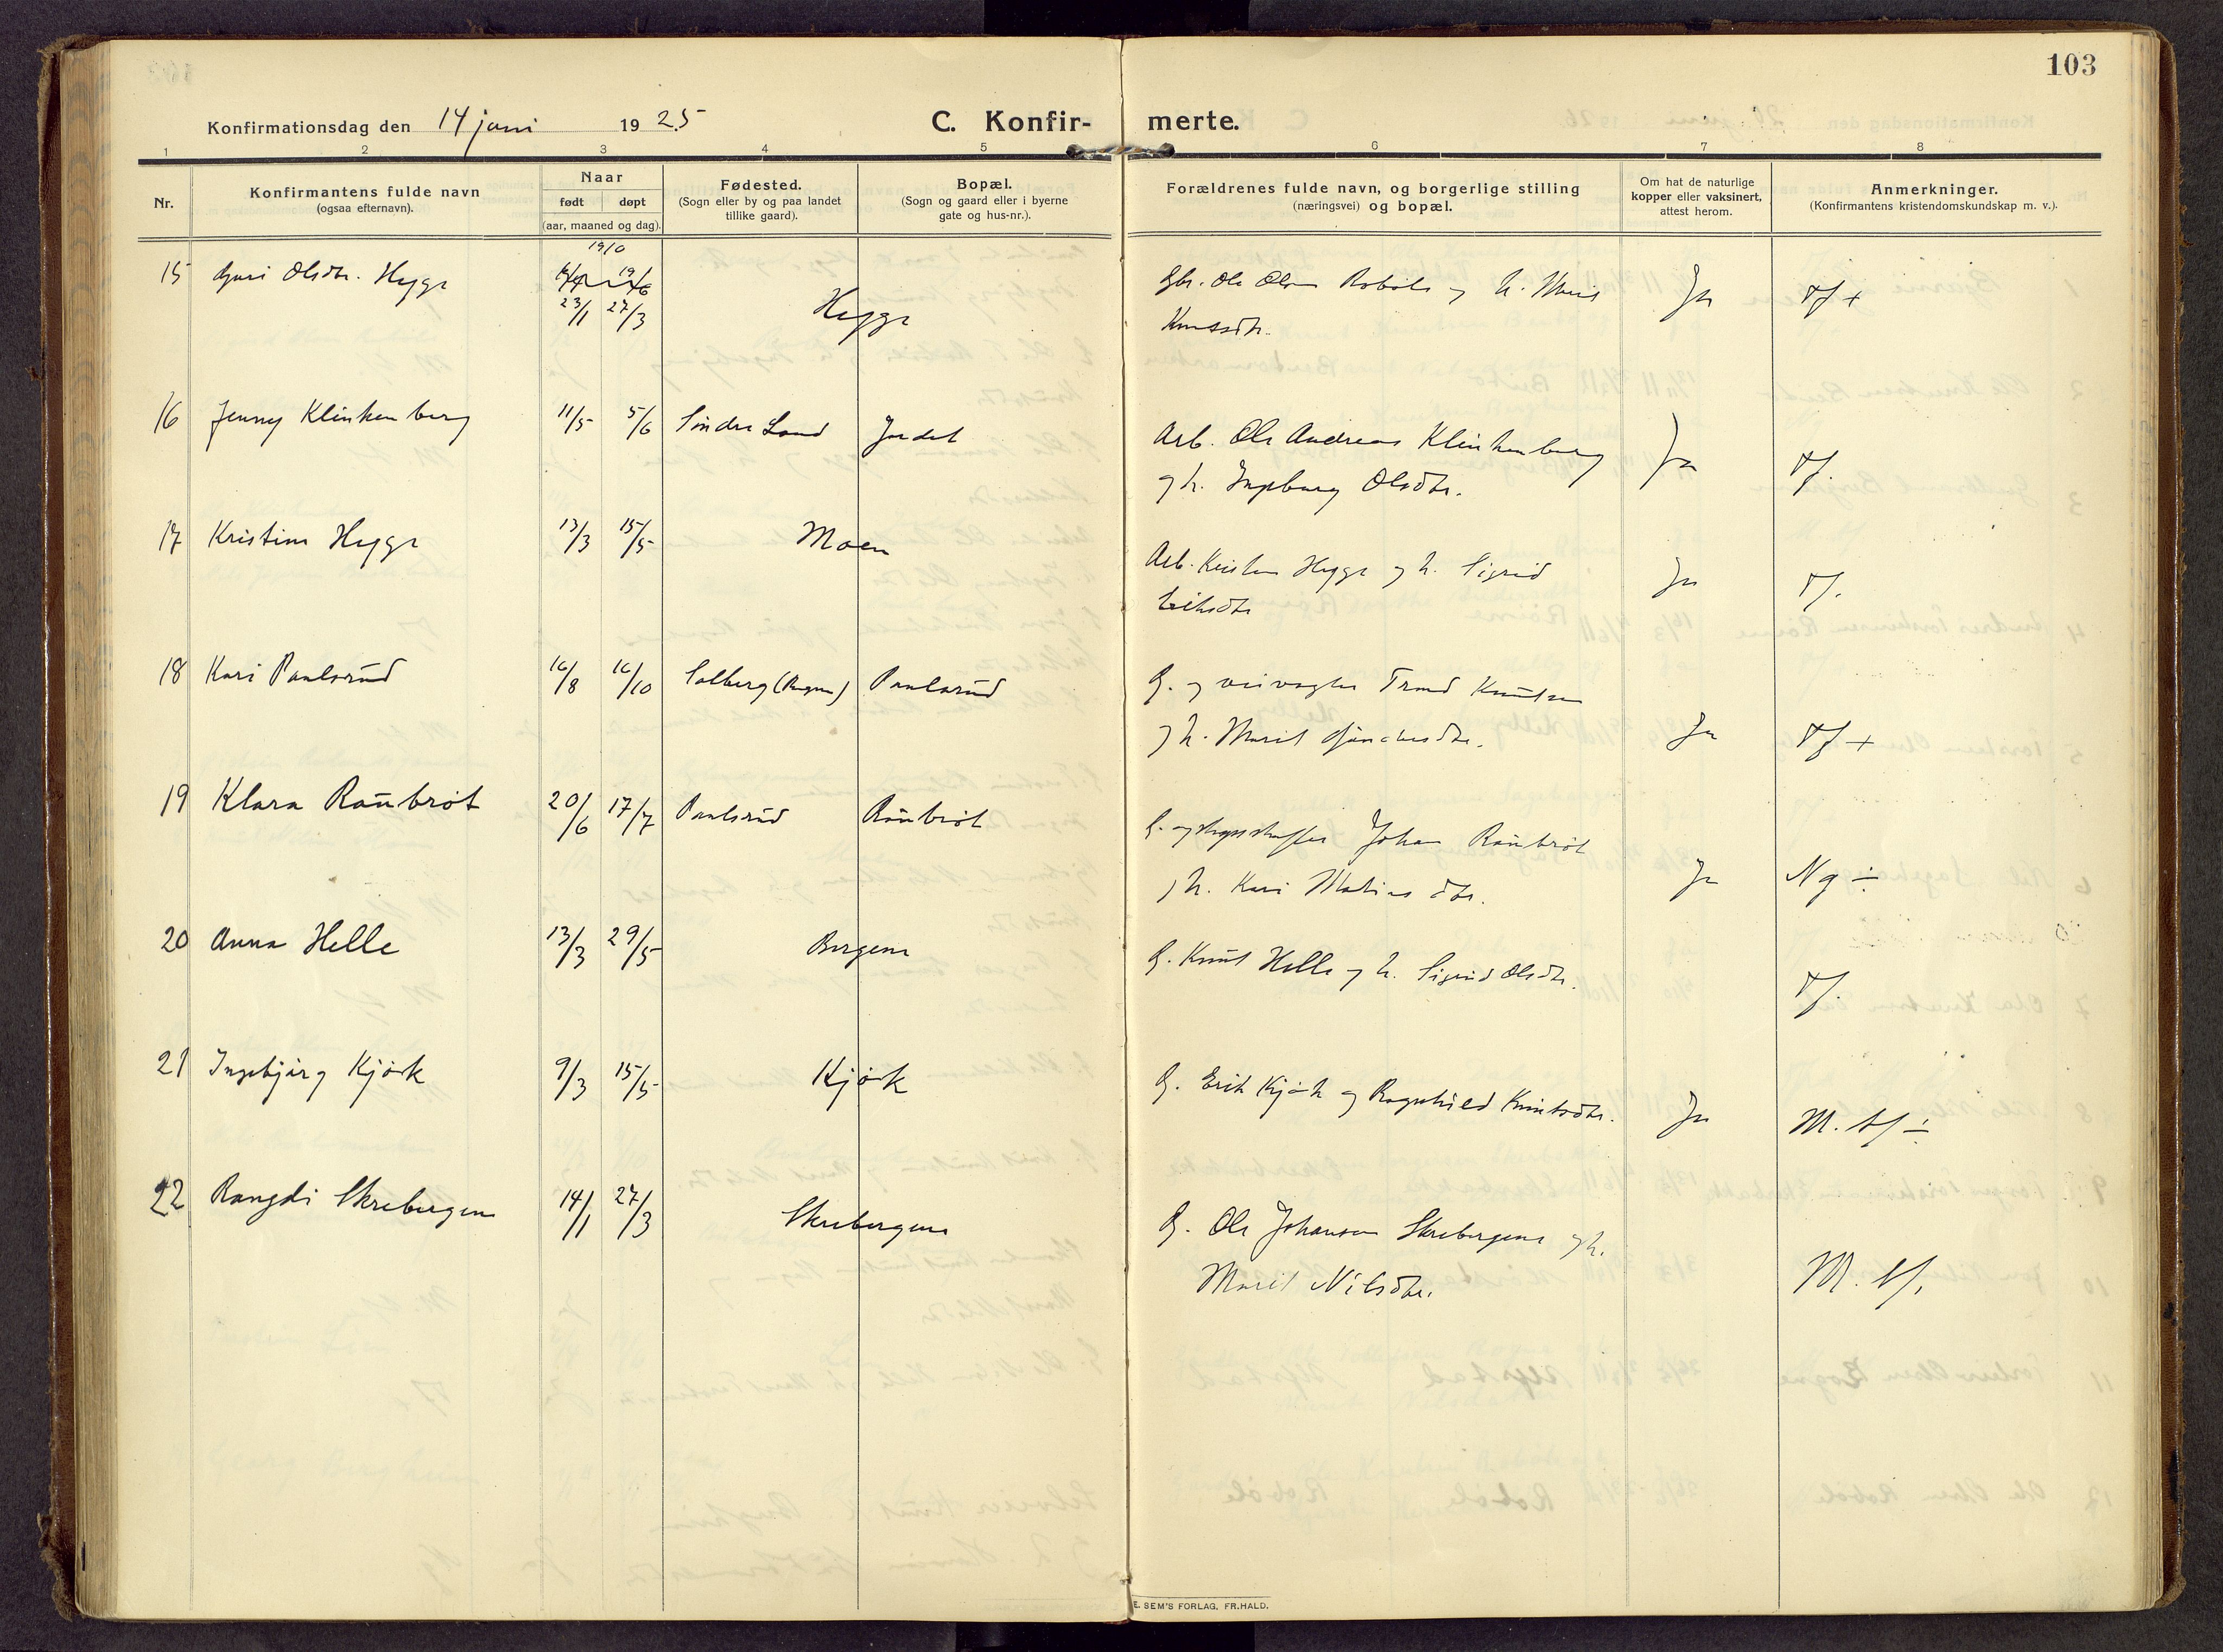 103
Konfirmationsdag den 14 juni 1925
C. Konfir-
merte.
1 2 3 4 5 6 7 8
Nr.
Konfirmantens fulde navn
(ogsaa efternavn).
Naar
født døpt
(aar, maaned og dag).
Fødested.
(Sogn eller by og paa landet
tillike gaard).
Bopæl.
(Sogn og gaard eller i byerne
gate og hus-nr.).
Forældrenes fulde navn, og borgerlige stilling
(næringsvei) og bopæl.
Om hat de naturlige
kopper eller vaksinert,
attest herom.
Anmerkninger.
(Konfirmantens kristendomskundskap m. v.).
1910
15 Guri Olsdtr. Hegge 23/1 27/3 Hegge Gbr. Ole Olsen Robøle og h. Marit Ja Tf +
Knutsdtr.
16 Jenny Klinkenberg 11/5 5/6 Søndre Land Jordet Arb. Ole Andreas Klinkenberg Ja Tf.
og h. Ingeborg Olsdtr.
17 Kristine Hegge 13/3 15/5 Moen Arb. Kristen Hegge og h. Sigrid Ja Tf.
Eriksdtr
18 Kari Paulsrud 16/8 16/10 Solberg (Rogne) Paulsrud G. og veivogter Trond Knutsen
og h. Marit Ja Tf +
19 Klara Raubrøt 20/6 17/7 Paulsrud Raubrøt G. og skysskaffer Johan Raubrøt
og h. Kari Matiasdtr. Ja Ng ÷
20 Anna Helle 13/3 29/5 Bergene G. Knut Helle og h. Sigrid Olsdtr. Tf.
21 Ingebjørg Kjørk 9/3 15/5 Kjørk G. Erik Kjørk og Ragnhild Knutsdtr. Ja M. tf ÷
22 Rangdi Skrebergene 14/1 27/3 Skrebergene G. Ole Johansen Skrebergene og h.
Marit Nilsdtr. M. tf.
E. SEM'S FORLAG, FR.HALD.